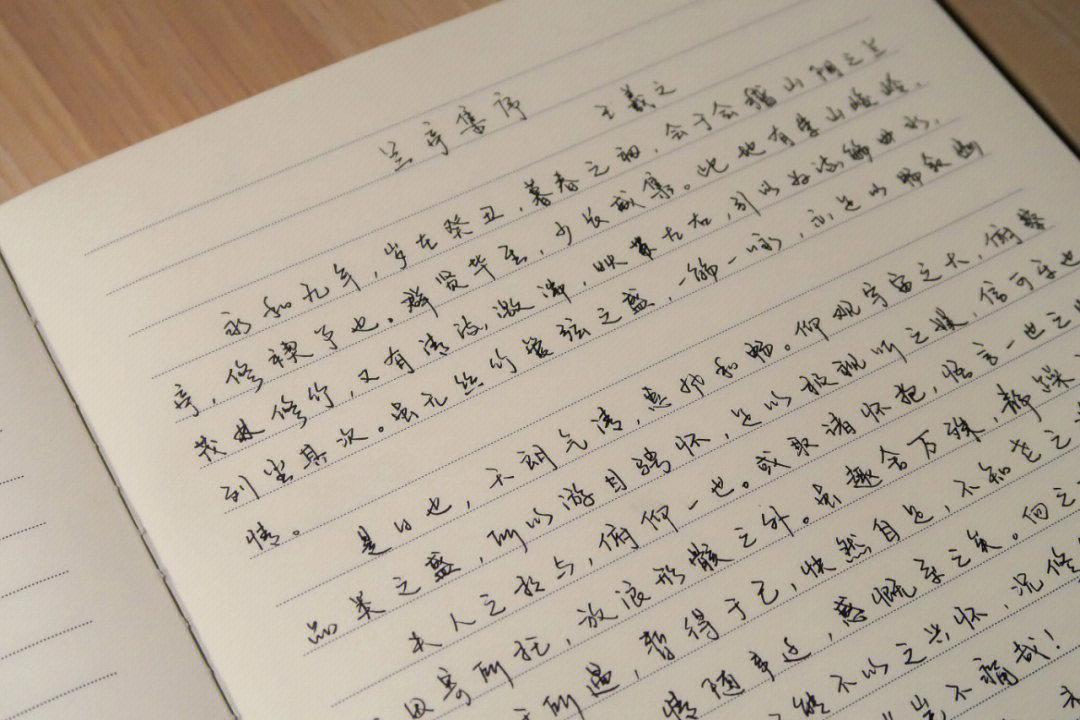 兰亭集序 王羲之
永和九年，岁在癸丑，暮春之初，会于会稽山阴之兰
亭，修禊事也。群贤毕至，少长咸集。此地有崇山峻岭，
茂林修竹，又有清流激湍，映带左右，引以为流觞曲水，
列坐其次。虽无丝竹管弦之盛，一觞一咏，亦足以畅叙幽
情。
是日也，天朗气清，惠风和畅。仰观宇宙之大，俯察
品类之盛，所以游目骋怀，足以极视听之娱，信可乐也
夫人之相与，俯仰一世。或取诸怀抱，悟言一室之
因寄所托，放浪形骸之外。虽趣舍万殊，静躁
于所遇，暂得于己，快然自足，不知老之
情随事迁，感慨系之矣。向之
能不以之兴怀，况修
岂不痛哉！